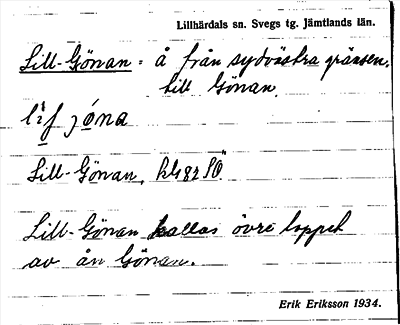 Lillhärdals sn. Svegs tg. Jämtlands län.
Lill-Gönan = å från sydvästra gränsen,
till Gönan.
Lill-Gönan,
Lill-Gönan kallas övre loppet
av ån Gönan.
Erik Eriksson 1934.